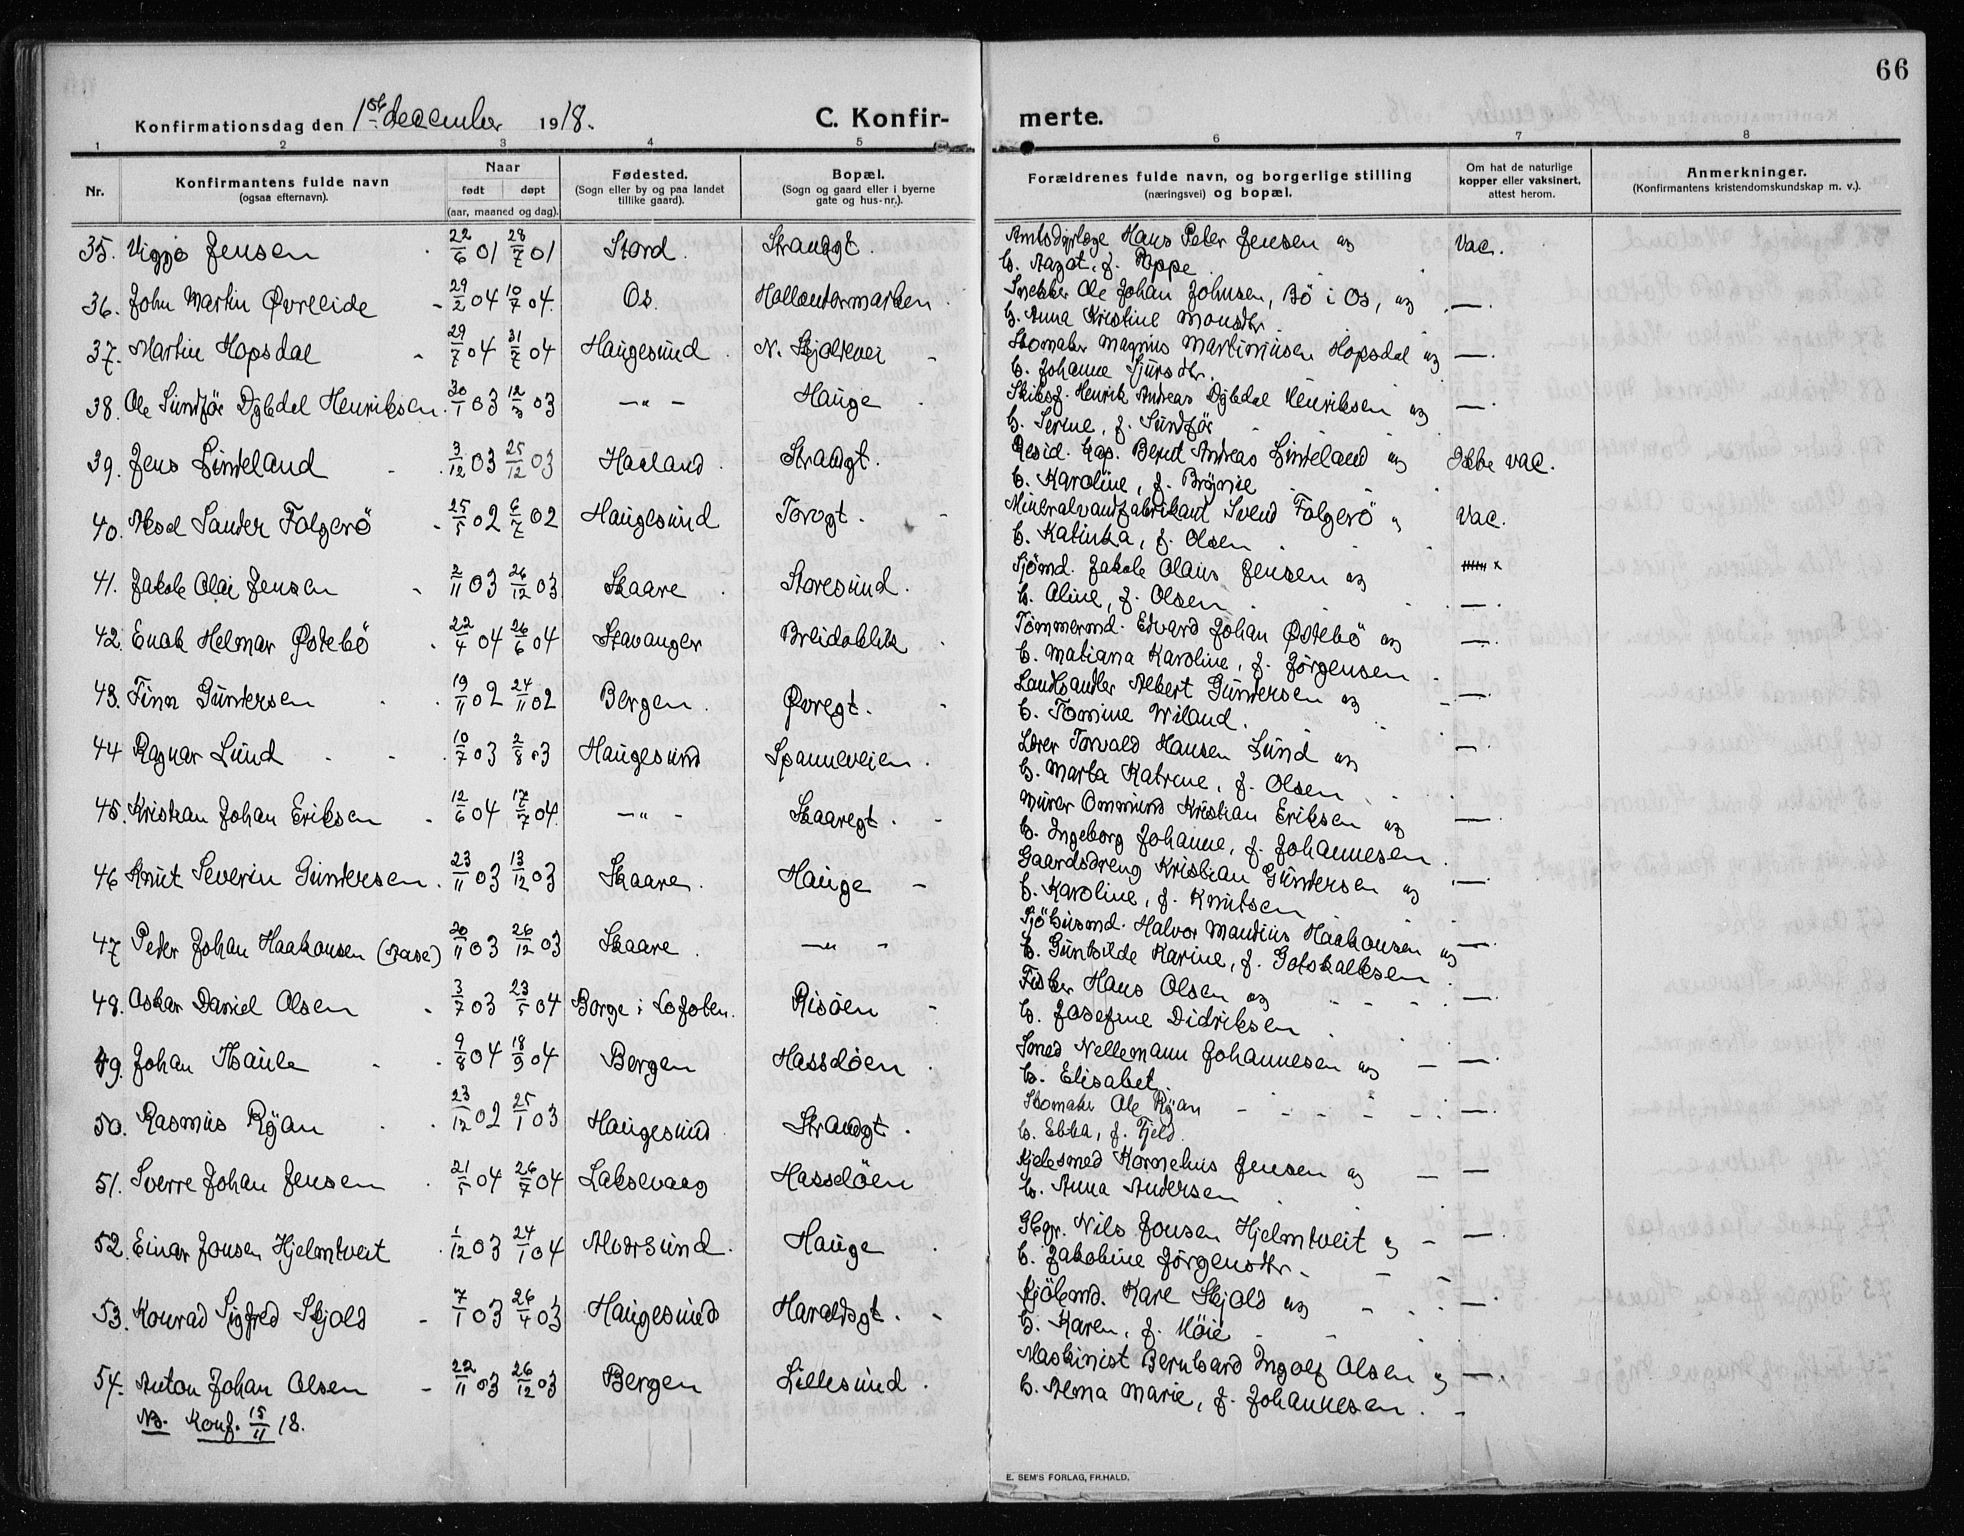 66
Konfirmationsdag den 1ste december 1918. C. Konfirmerte.
1 2 3 4 5 6 7 8
Nr. Konfirmantens fulde navn (ogsaa efternavn). Naar født døpt (aar, maaned og dag). Fødested. (Sogn eller by og paa landet tillike gaard). Bopæl. (Sogn og gaard eller i byerne gate og hus-nr.). Forældrenes fulde navn, og borgerlige stilling (næringsvei) og bopæl. Om hat de naturlige kopper eller vaksinert, attest herom. Anmerkninger. (Konfirmantens kristendomskundskap m. v.).
35. Viggo Jensen 22/6 01 28/7 01 Stord. Strandgt. Amtsdyrlæge Hans Peter Jensen og Vac.
H. Aagot, f. Poppe.
36. John Martin Øvreeide 29/2 04 10/7 04. Os. Hollendermarken. Snekker Ole Johan Johnsen, Bö i Os, og —
H. Anna Kristine Monsdtr.
37. Martin Hopsdal 29/7 04 31/7 04 Haugesund. N. Skjoldvei Skomaker Magnus Martiniusen Hopsdal og —
H. Johanne Sjursdtr.
38. Ole Sundför Dybdal Henriksen 30/1 03 12/3 03 —"— Hauge Skibsf. Henrik Andreas Dybdal Henriksen og —
H. Serine, f. Sundför
39. Jens Lindeland 3/12 03 25/12 03 Haaland. Strandgt. Resid. Cap. Bernt Andreas Lindeland og Ikke vac.
H. Karoline, f. Bryne
40. Aksel Sander Falgerö 25/5 02 6/7 02 Haugesund Torvgt. Mineralvandfabrikant Svend Falgerö og Vac.
H. Katinka, f. Olsen
41. Jakob Olai Jensen 2/11 03 26/12 03 Skaare. Storesund. Sjömd. Jakob Olaus Jensen og
H. Aline, f. Olsen. —
42. Enok Helmar Östebö 22/4 04 26/6 04 Stavanger Breidablik Tömmermd. Edvard Johan Östebö og —
H. Matiana Karoline, f. Jörgensen
43. Finn Gundersen 19/11 02 24/11 02 Bergen. Øvregt. Landhandler Albert Gundersen og —
H. Tomine Wiland.
44 Ragnar Lund 10/7 03 2/8 03 Haugesund Spanneveien. Lærer Torvald Hansen Lund og —
H. Marta Katrine, f. Olsen
45. Kristian Johan Eriksen 12/6 04 17/7 04. —"— Skaaregt. Murer Ommund Kristian Eriksen og —
H. Ingeborg Johanne, f. Johannesen.
46 Knut Severin Gundersen. 23/11 03 13/12 03 Skaare. Hauge Gaardsdreng Kristian Gundersen og —
H. Karoline, f. Knutsen
47 Peder Johan Haakonsen 20/11 03 26/12 03 Skaare —"— Sjöhusmd. Halvor Mandius Haakonsen og —
H. Gunhilde Karine, f. Gotskalksen
48. Oskar Daniel Olsen 3/7 03 23/5 04 Borge i Lofoten. Risöen Fisker Hans Olsen og —
H. Josefine Didriksen
49. Johan Thaule 9/8 04 18/9 04 Bergen Hasselöen Smed Nellemann Johannesen og —
H. Elisabet.
50. Rasmus Ryan 23/12 02 25/1 03 Haugesund Strandgt. Skomaker Ole Ryan —
H. Ebba, f. Fjeld.
51. Sverre Johan Jensen 21/5 04 26/7 04 Laksevaag Hasselöen Kjelesmed Kornelius Jensen og —
H. Anna Andersen
52. Einar Jonsen Hjelmtveit 1/12 03 24/1 04 Alversund. Hauge Gbgr. Nils Jonsen Hjelmtveit og —
H. Jakobine Jörgensdtr.
53. Konrad Sigfred Skjold 7/1 03 26/4 03 Haugesund Haraldsgt. Kare Skjold og —
H. Karen, f. Höie
54. Anton Johan Olsen 22/11 03 26/12 03 Bergen Lillesund. Maskinist Bernhard Ingolf Olsen og —
H. Alma Marie, f. Johannesen.
NB. Konf. 15/11 18.
E. SEM'S FORLAG, FR.HALD.